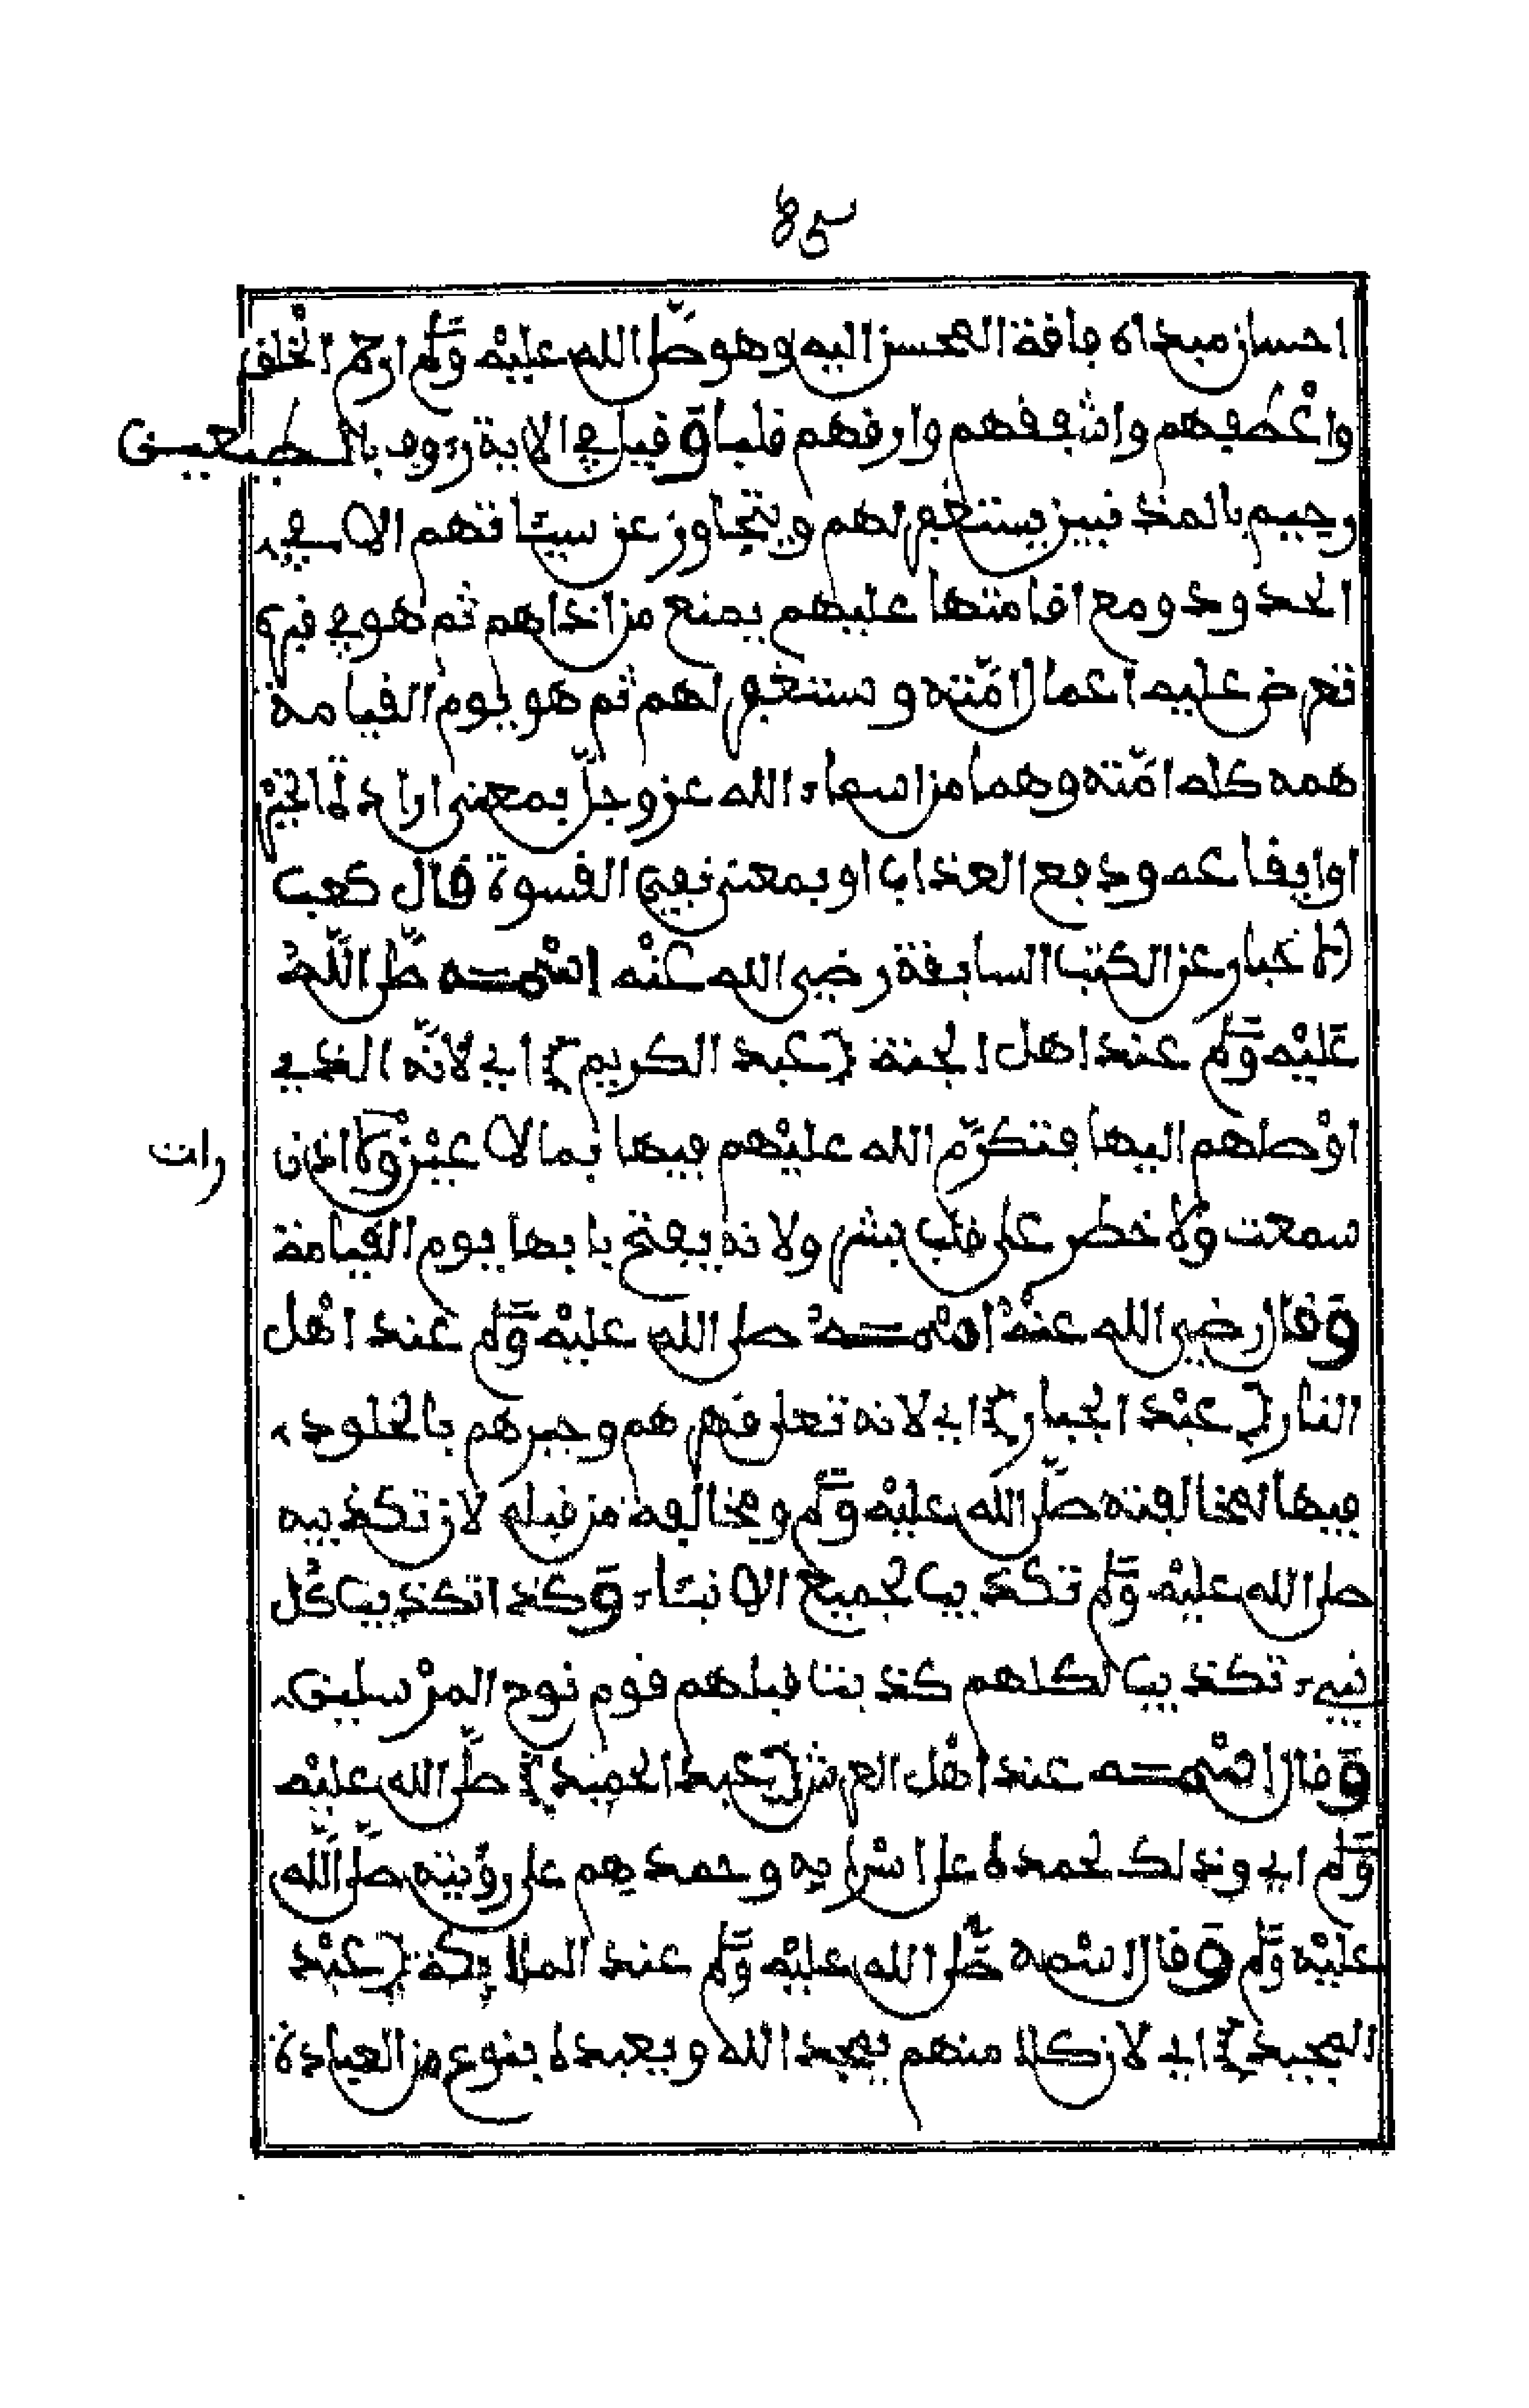 احسان مبداه فاقة المحسن اليه وهو صلى الله عليه وسلم ارحم الخلق
واعطفهم واشفقهم وارقهم قلبا وقيل في الاية رءوف بالمطيعين
رحيم بالمذنبين يستغفر لهم ويتجاوز عن سيئاتهم الا في
الحدود ومع اقامتها عليهم يمنع من اذاهم ثم هو في قبره
تعرض عليه اعمال امته ويستغفر لهم ثم هو يوم القيامة
همه كله امته وهما من اسماء الله عز وجل بمعنى ارادة الخير
او ايقاعه ودفع العذاب او بمعنى نفي القسوة قال كعب
الاخبار عن الكتب السابقة رضي الله عنه اسمه صلى الله
عليه وسلم عند اهل الجنة (عبد الكريم) اي لانه الذي
اوصلهم اليها فتكرم الله عليهم فيها بما لا عين رات ولا اذن
سمعت ولا خطر على قلب بشر ولانه يفتح بابها يوم القيامة
وقال رضي الله عنه اسمه صلى الله عليه وسلم عند اهل
النار (عبد الجبار) اي لانه تعلى قهرهم وجبرهم بالخلود
فيها لمخالفته صلى الله عليه وسلم ومخالفة من قبله لان تكذيبه
صلى الله عليه وسلم تكذيب لجميع الانبياء وكذا تكذيب كل
نبيء تكذيب لكلهم كذبت قبلهم قوم نوح المرسلين
وقال اسمه عند اهل العرش (عبد الحميد) صلى الله عليه
وسلم اي وذلك لحمده على اسرايه وحمدهم على رؤيته صلى الله
عليه وسلم وقال اسمه صلى الله عليه وسلم عند الملايكة (عبد
المجيد) اي لان كلا منهم يمجد الله ويعبده بنوع من العبادة